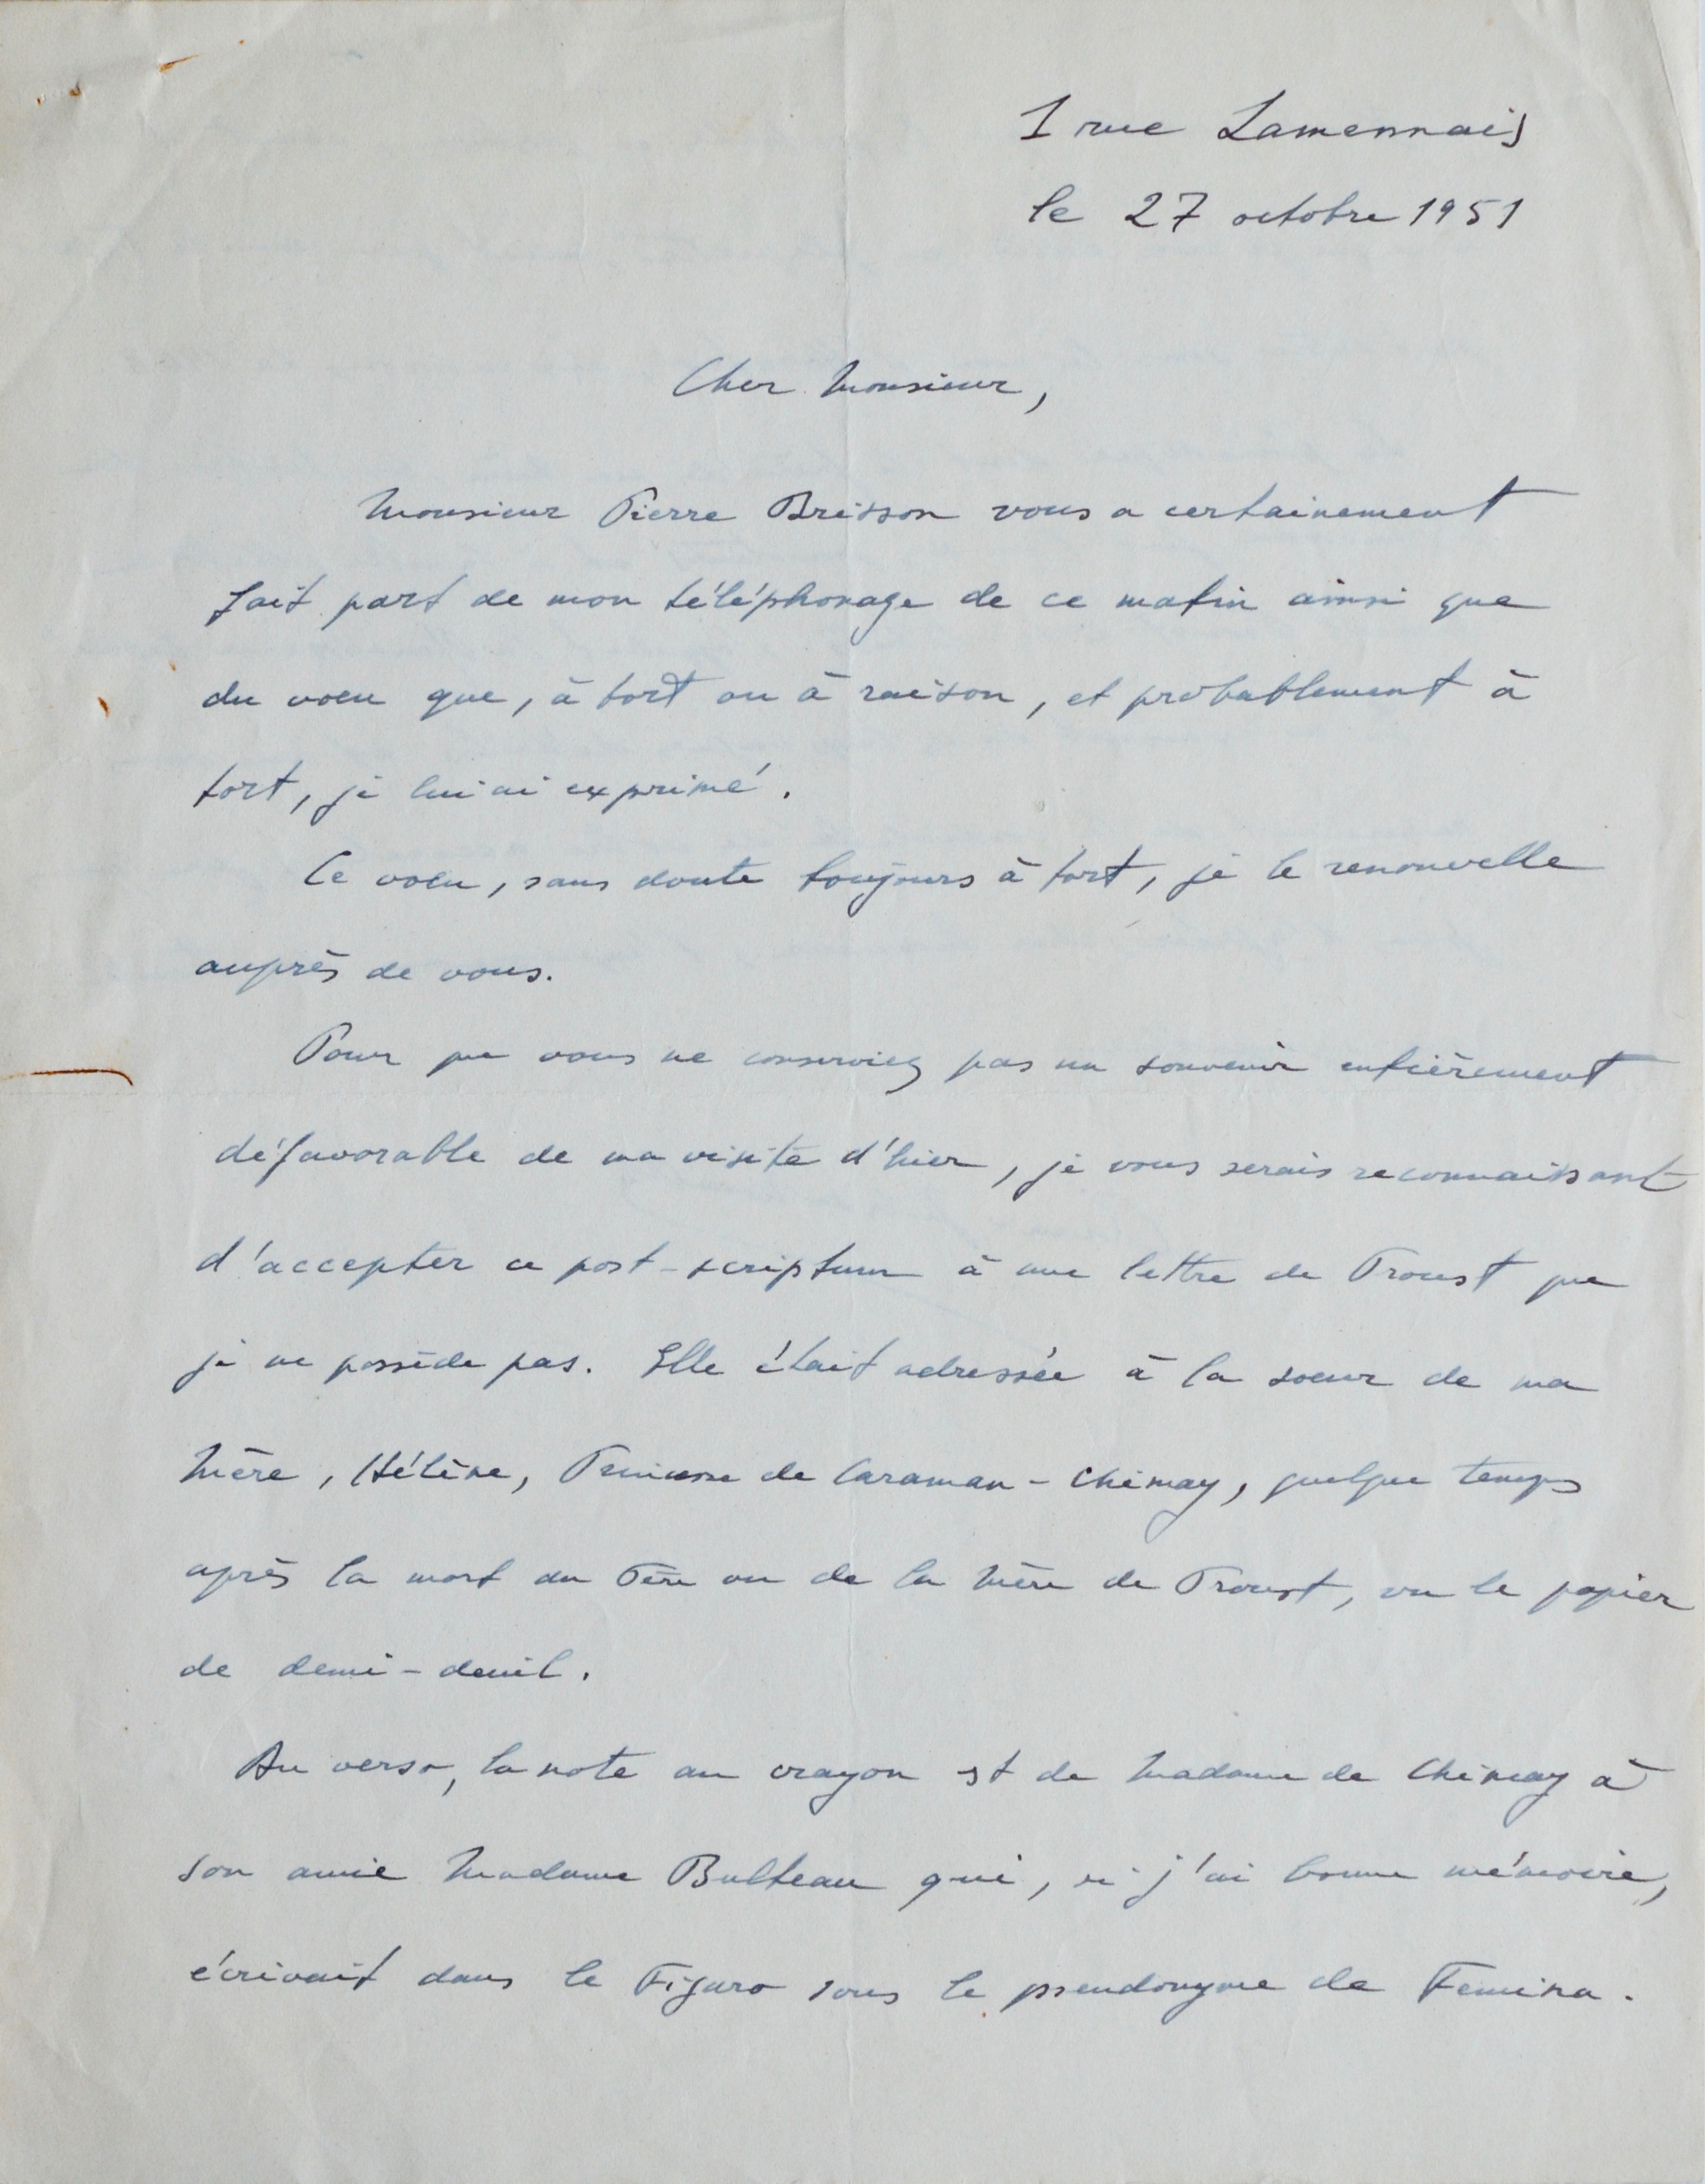 1 rue Lamennais
le 27 octobre 1951
Cher Monsieur,
Monsieur Pierre Brisson vous a certainement
fait part de mon téléphonage de ce matin ainsi que
du voeu que, à tort ou à raison, et probablement à
tort, je lui ai exprimé.
Ce voeu, sans doute toujours à tort, je le renouvelle
auprès de vous.
Pour que vous ne conserviez pas un souvenir entièrement
défavorable de ma visite d'hier, je vous serais reconnaissant
d'accepter ce post-scriptum à une lettre de Proust que
je ne possède pas. Elle était adressée à la soeur de ma
Mère, Hélène, Princesse de Caraman-Chimay, quelque temps
après la mort du Père ou de la Mère de Proust, vu le papier
de demi-deuil.
Au verso, la note au crayon est de Madame de Chimay à
son amie Madame Bulteau qui, si j'ai bonne mémoire,
écrivait dans le Figaro sous le pseudonyme de Femina.